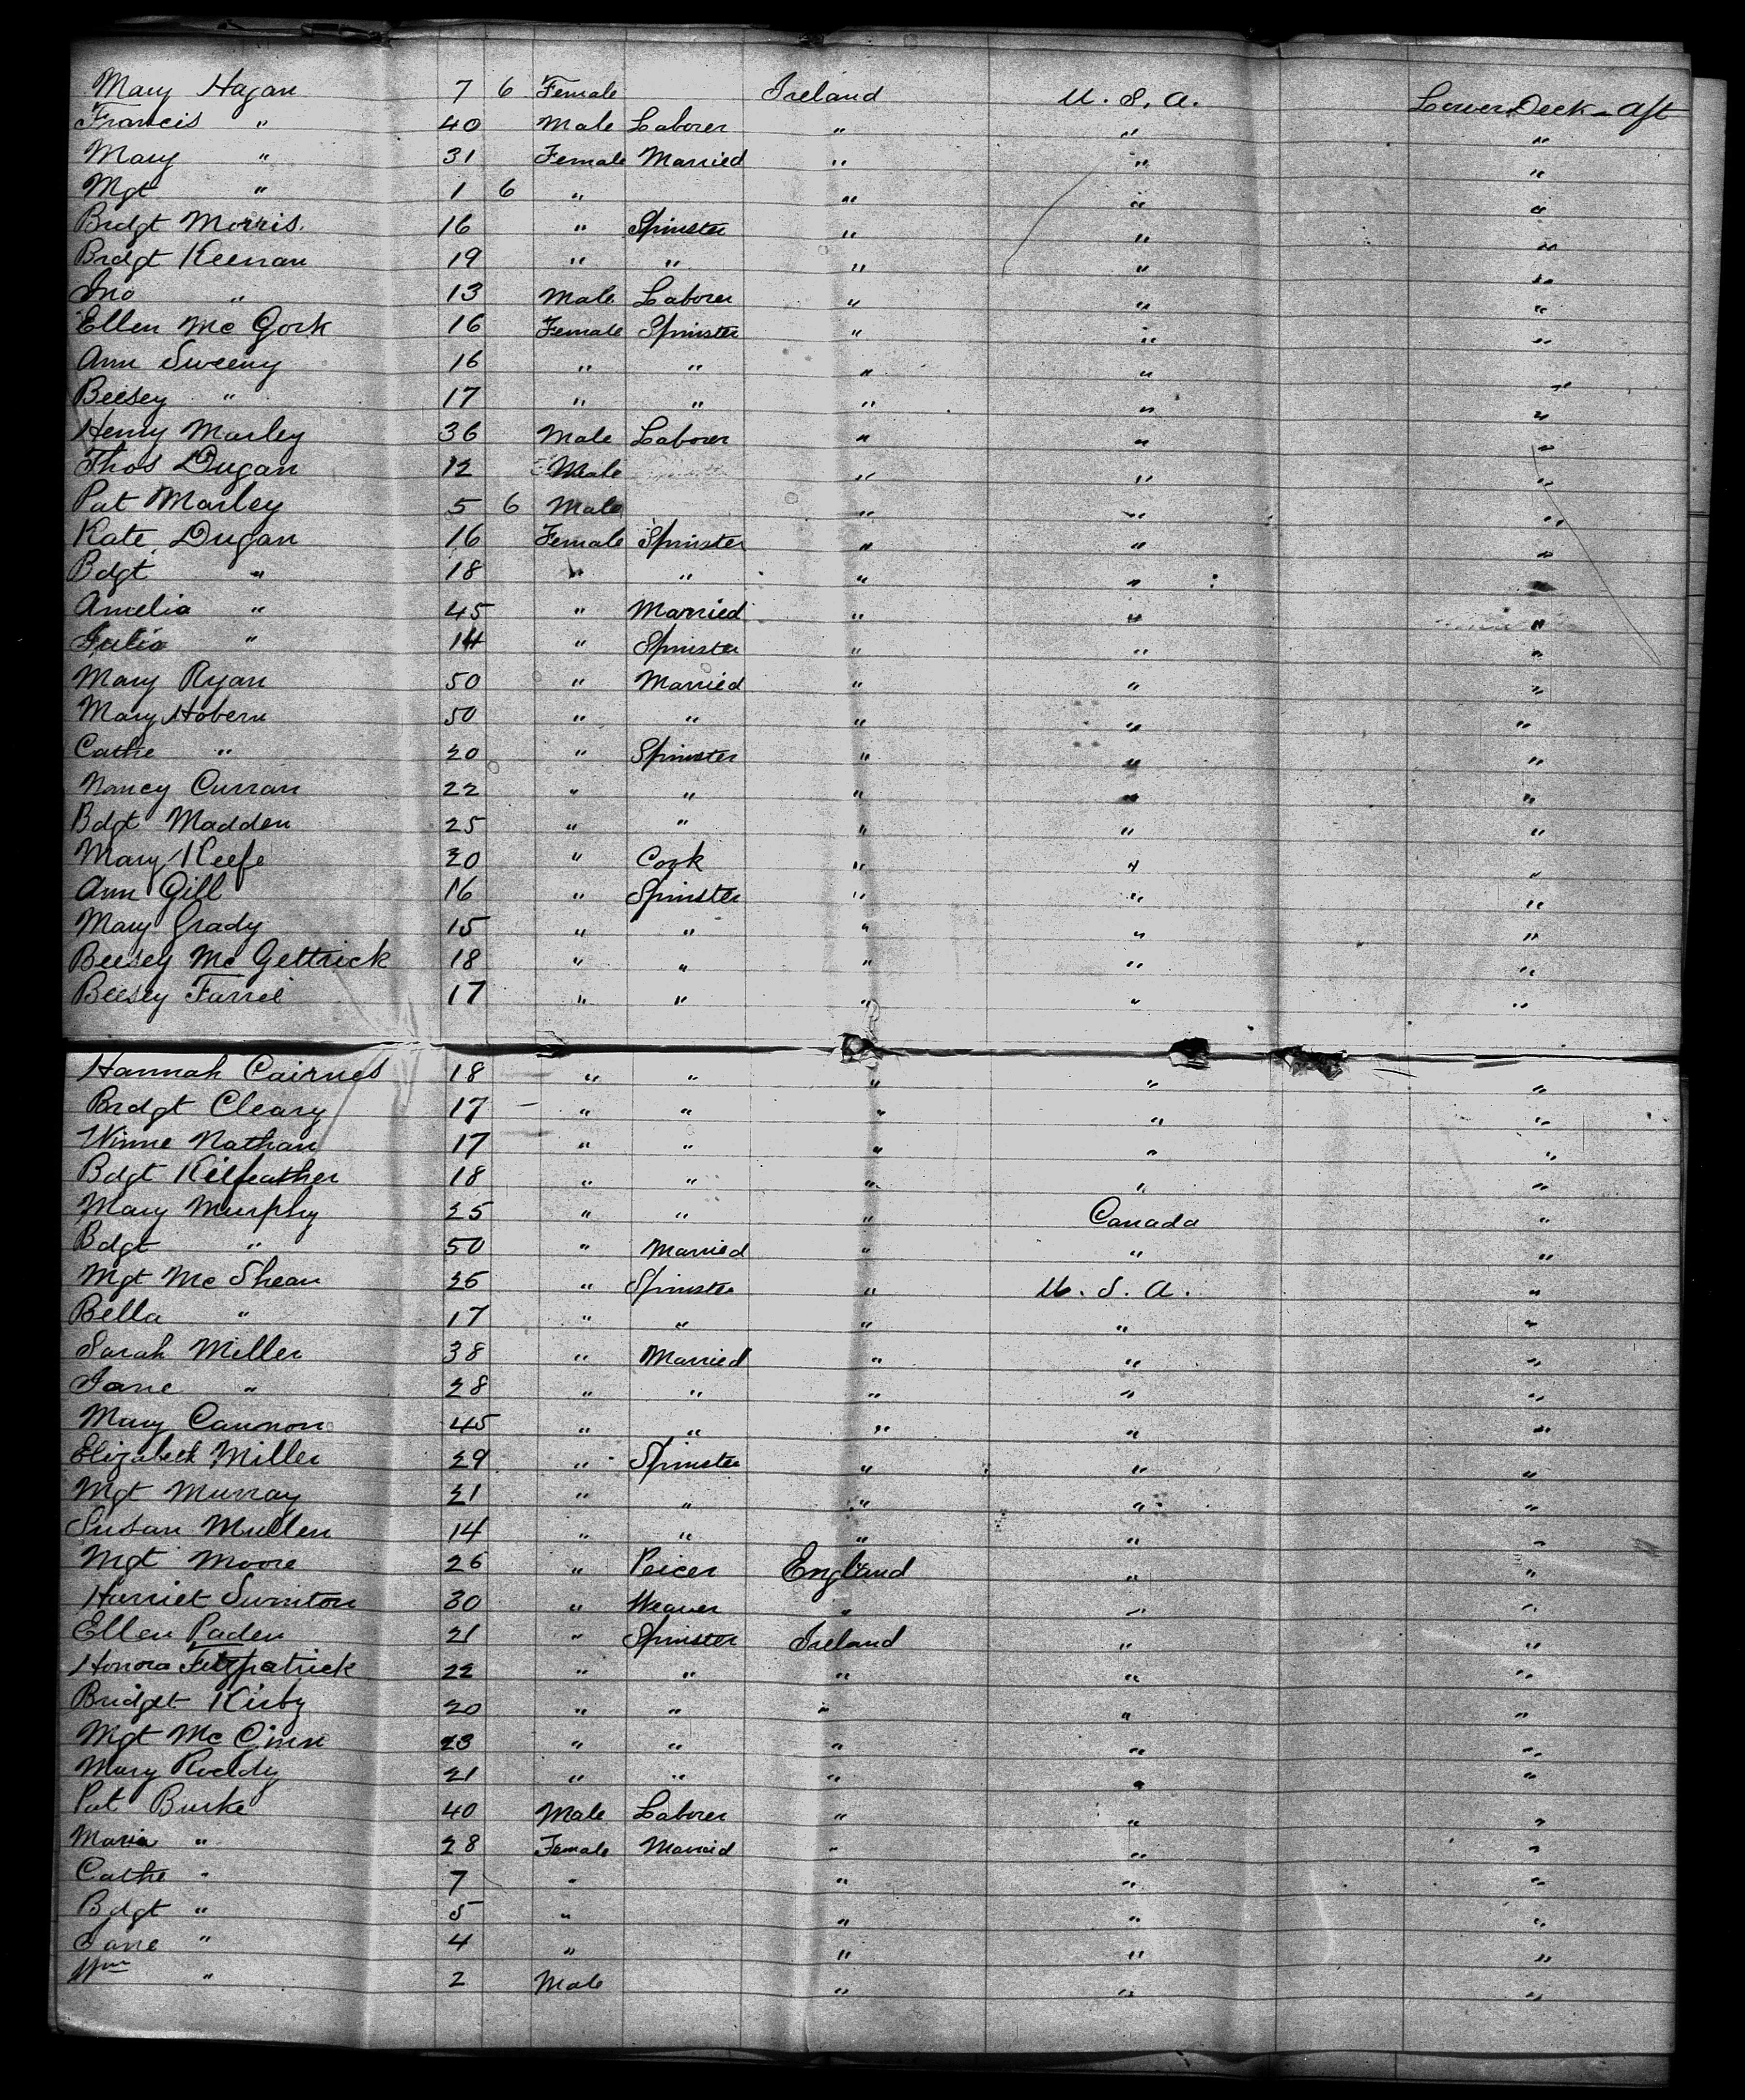 Mary Hagan 7 6 Female Ireland U. S. A. Lower Deck - Aft
Francis " 40 Male Laborer " " "
Mary " 31 Female Married " " "
Mgt " 1 6 " " " "
Brdgt Morris. 16 " Spinster " " "
Brdgt Keenan 19 " " " " "
Jno " 13 Male Laborer " " "
Ellen Mc Gork 16 Female Spinster " " "
Ann Sweeny 16 " " " " "
Beesey " 17 " " " " "
Henry Marley 36 Male Laborer " " "
Thos Dugan 12 Male " " "
Pat Marley 5 6 Male " " "
Kate Dugan 16 Female Spinster " " "
Bdgt " 18 " " " " "
Amelia " 45 " Married " " "
Julia " 14 " Spinster " " "
Mary Ryan 50 " Married " " "
Mary Hobern 50 " " " " "
Cathe " 20 " Spinster " " "
Nancy Curran 22 " " " " "
Bdgt Madden 25 " " " " "
Mary Keefe 20 " Cook " " "
Ann Gill 16 " Spinster " " "
Mary Grady 15 " " " " "
Beesey Mc Gettrick 18 " " " " "
Beesey Farrel 17 " " " " "
Hannah Cairnes 18 " " " " "
Brdgt Cleary 17 " " " " "
Winne Nathan 17 " " " " "
Bdgt Kilfeather 18 " " " " "
Mary Murphy 25 " " " Canada "
Bdgt " 50 " Married " " "
Mgt Mc Shean 25 " Spinster " U. S. A. "
Bella " 17 " " " " "
Sarah Miller 38 " Married " " "
Jane " 28 " " " " "
Mary Cannon 45 " " " " "
Elizabeth Miller 29 " Spinster " " "
Mgt Murray 21 " " " " "
Susan Mullen 14 " " " " "
Mgt Moore 26 " Peicer England " "
Harriet Swinton 30 " Weaver " " "
Ellen Paden 21 " Spinster Ireland " "
Honora Fitzpatrick 22 " " " " "
Bridget Kirby 20 " " " " "
Mgt Mc Ginn 23 " " " " "
Mary Roddy 21 " " " " "
Pat Burke 40 Male Laborer " " "
Maria " 28 Female Married " " "
Cathe " 7 " " " "
Bdgt " 5 " " " "
Jane " 4 " " " "
Wm " 2 Male " " "